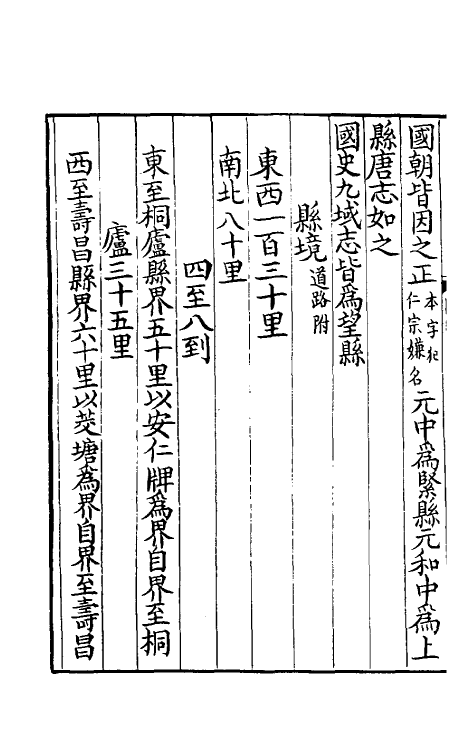 國朝皆因之正本字犯仁宗嫌名元中為緊縣元和中為上
縣唐志如之
國史九域志皆為望縣
縣境道路附
東西一百三十里
南北八十里
四至八到
東至桐廬縣界五十里以安仁牌為界自界至桐
廬三十五里
西至壽昌縣界六十里以茭塘為界自界至壽昌